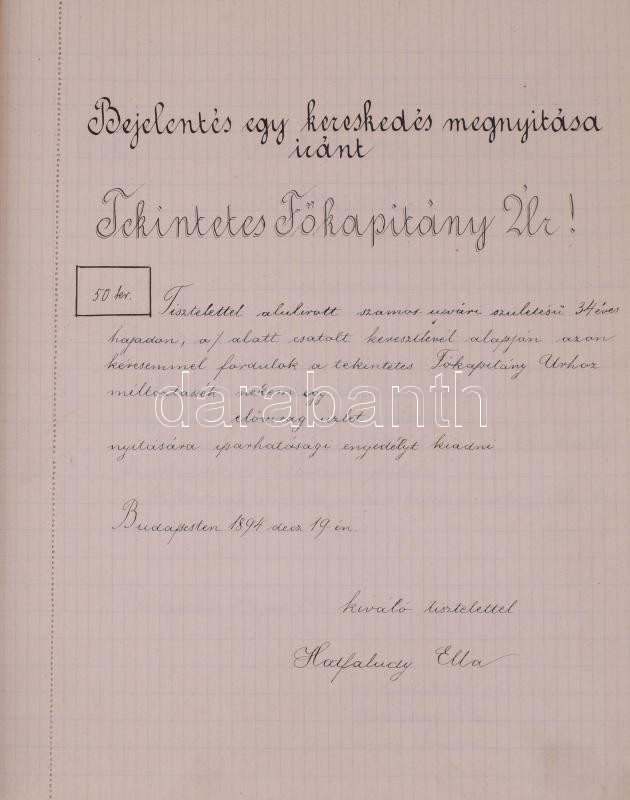 Bejelentés egy kereskedés megnyitása
iránt
Tekintetes Főkapitány Úr!
50 kr.
Tisztelettel alulirott szamos-ujvári születésü 34 éves
hajadon, a/ alatt csatolt keresztlevél alapján azon
kéresemmel fordulok a tekintetes Főkapitány Urhoz
méltoztassék nekem egy
élővirág üzlet
nyitására iparhatósagi engedélyt kiadni
darabanth
Budapesten 1894 decz 19-én.
kiváló tisztelettel
Hatfaludy Ella